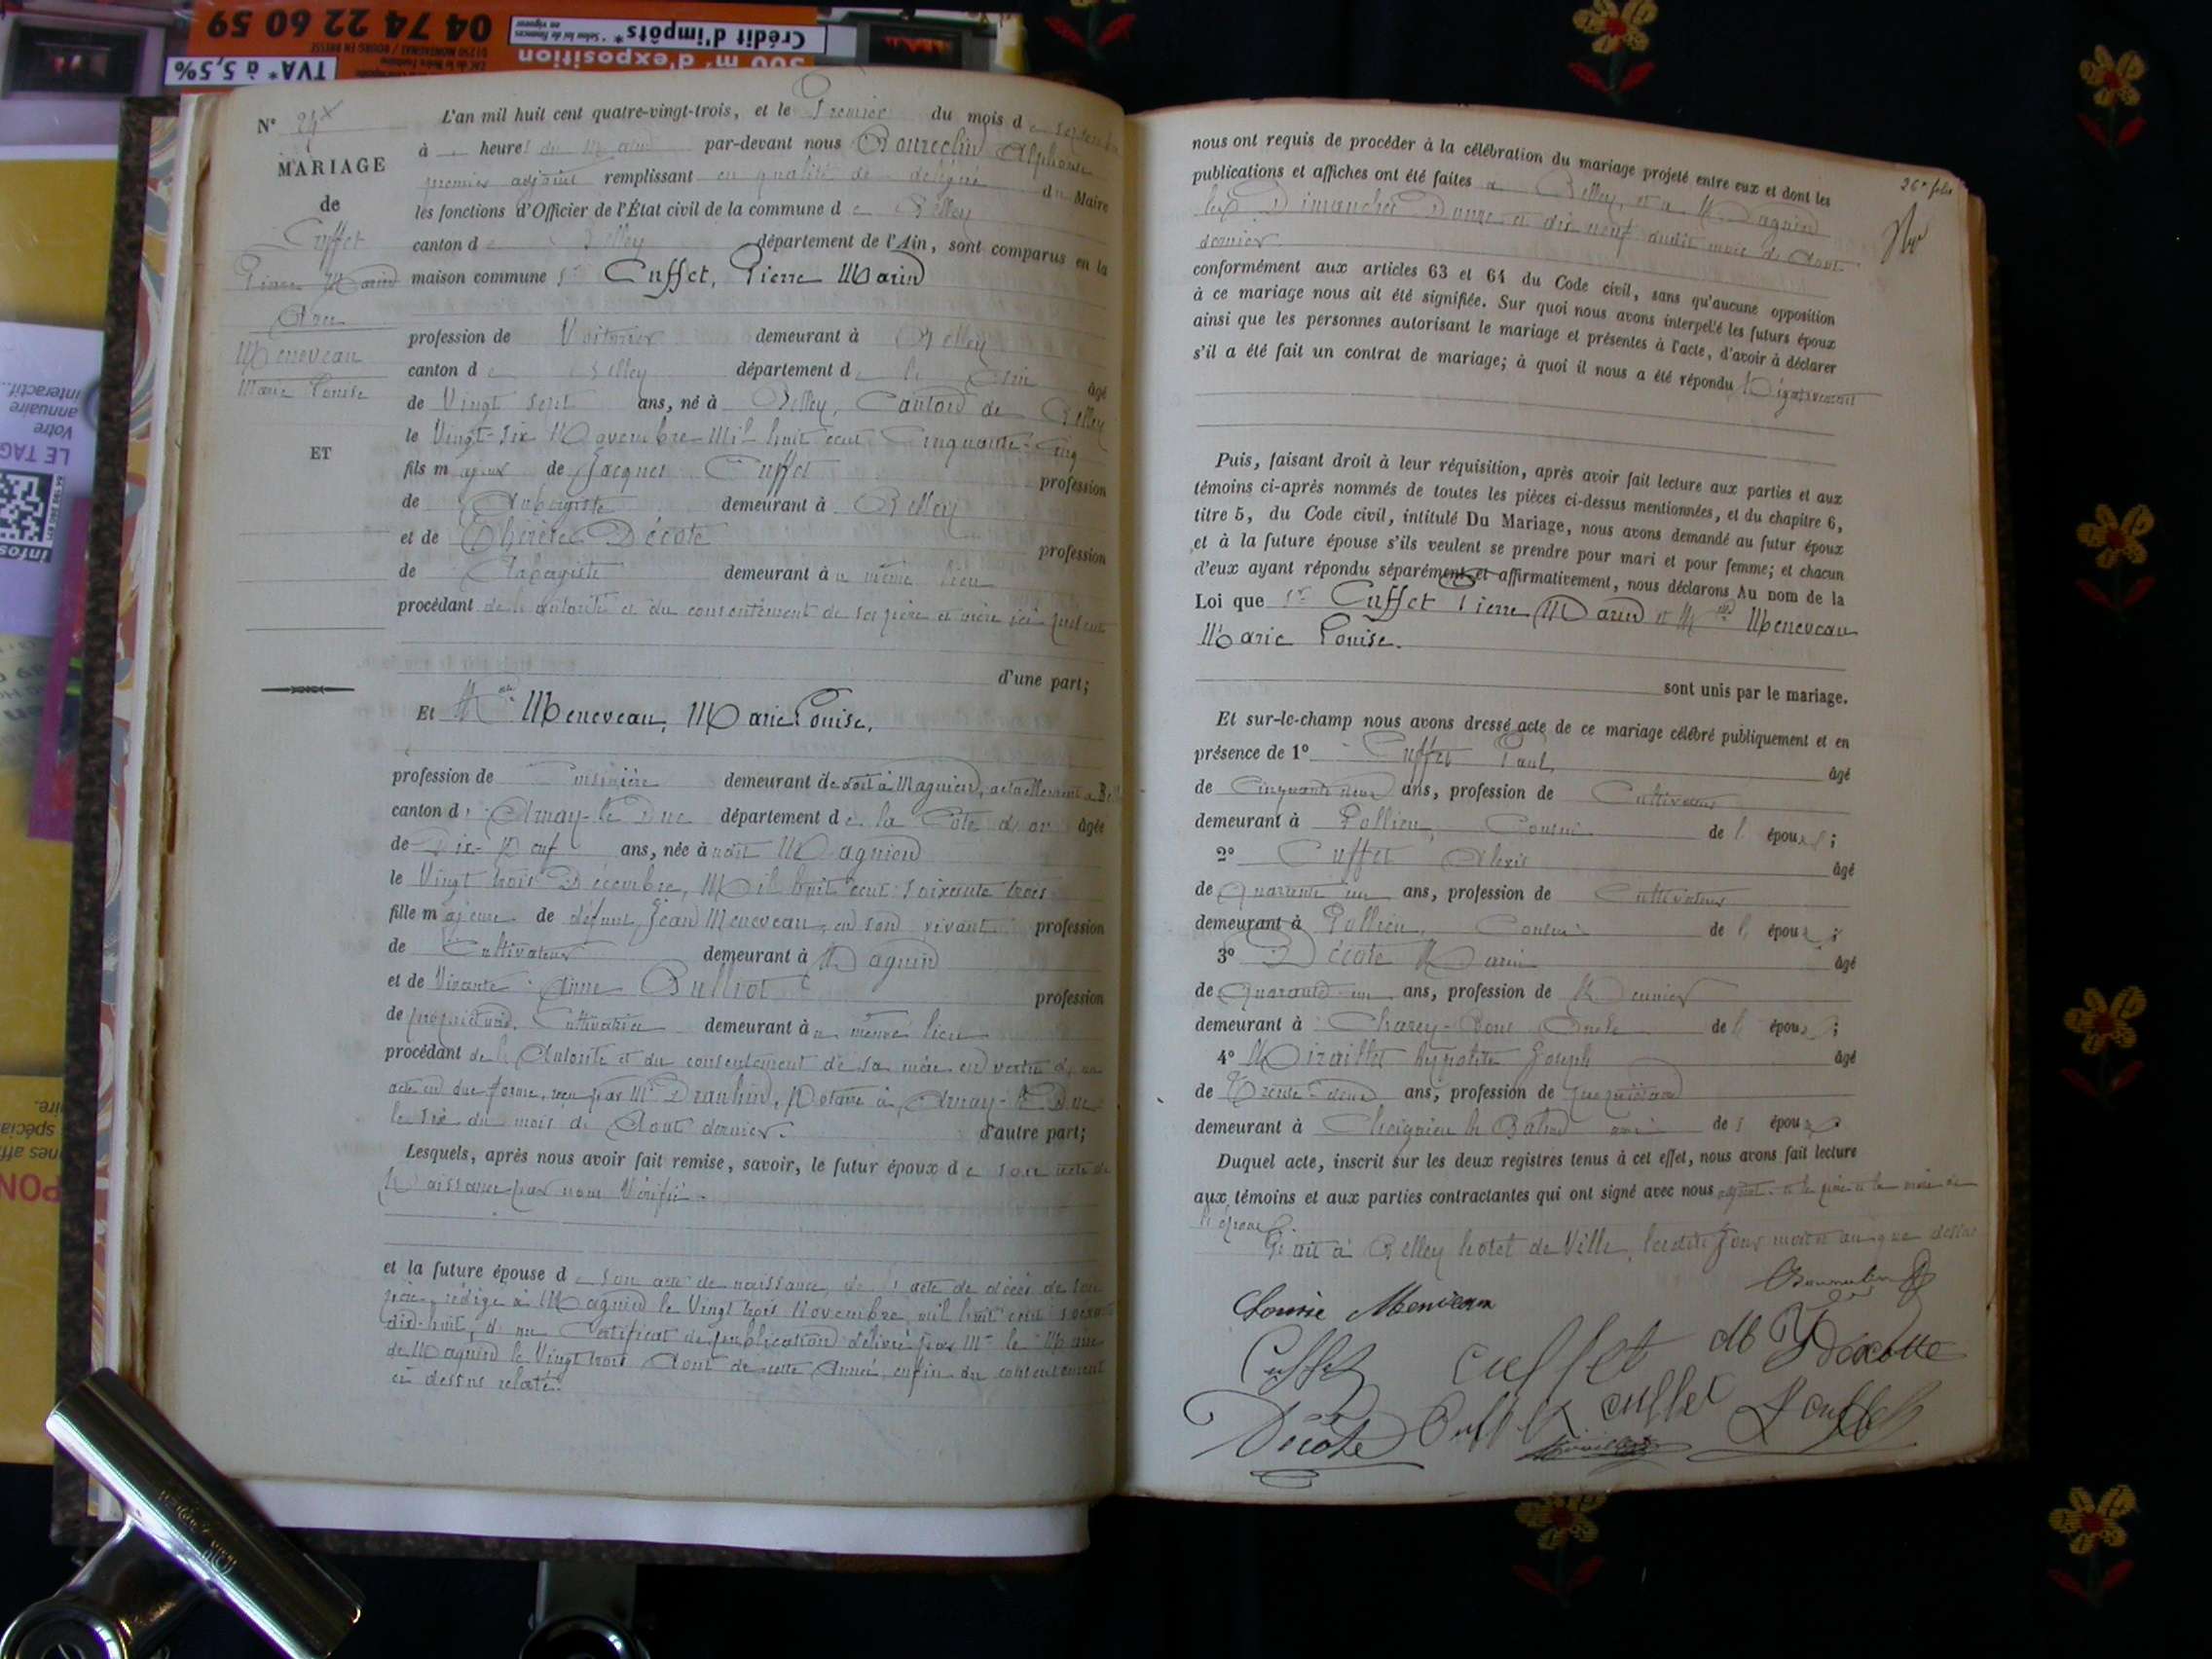 04 74 22 60 59
ZAC de la Neire Fontaine
01250 MONTAGNAT / BOURG EN BRESSE
TVA* à 5,5%
Crédit d'impôts*
500 m² d'exposition
Votre
annuaire
interactif...
LE TAG
N° 24
MARIAGE
de
Cuffet
Pierre Marin
Avec
Meneveau
Marie Louise
ET
L'an mil huit cent quatre-vingt-trois, et le Premier du mois de Septembre
à heures du Matin par-devant nous Alphonse
premier adjoint remplissant en qualité de délégué du Maire
les fonctions d'Officier de l'État civil de la commune de Belley
canton de Belley département de l'Ain, sont comparus en la
maison commune Sr Cuffet, Pierre Marin
profession de Voiturier demeurant à Belley
canton de Belley département de l'Ain âgé
de Vingt sept ans, né à Belley, Canton de Belley
le Vingt-six Novembre Mil huit cent Cinquante-Cinq
fils majeur de Jacques Cuffet profession
de demeurant à Belley
et de Thérèse Décote profession
de demeurant au même lieu
procédant de l'autorité et du consentement de ses père et mère ici présents
d'une part;
Et Mlle Meneveau, Marie Louise,
profession de Cuisinière demeurant de droit à Magnien, actuellement à Belley
canton d'Arnay-le Duc département de la Côte d'or âgée
de Dix-Neuf ans, née audit Magnien
le Vingt trois Décembre, Mil huit cent soixante trois
fille majeure de défunt Jean Meneveau, en son vivant profession
de Cultivateur demeurant à Magnien
et de Vivante Anne Bulliot profession
de propriétaire, Cultivatrice demeurant au même lieu
procédant de l'Autorité et du consentement de sa mère en vertu d'un
acte en due forme, reçu par Me Notaire à Arnay-le Duc
le six du mois de Aout dernier. d'autre part;
Lesquels, après nous avoir fait remise, savoir, le futur époux de son acte de
Naissance par nous Vérifié.
et la future épouse de son acte de naissance, de l'acte de décès de son
père, rédigé à Magnien le Vingt trois Novembre, mil huit cent soixante
dix-huit, d'un Certificat de publication délivré par Mr le Maire
de Magnien le Vingt trois Aout de cette Année, enfin du consentement
ci dessus relaté.
26e folio
nous ont requis de procéder à la célébration du mariage projeté entre eux et dont les
publications et affiches ont été faites à Belley, et à Magnien
les Dimanches Douze et dix neuf dudit mois de Aout
dernier.
conformément aux articles 63 et 64 du Code civil, sans qu'aucune opposition
à ce mariage nous ait été signifiée. Sur quoi nous avons interpellé les futurs époux
ainsi que les personnes autorisant le mariage et présentes à l'acte, d'avoir à déclarer
s'il a été fait un contrat de mariage; à quoi il nous a été répondu Négativement
Puis, faisant droit à leur réquisition, après avoir fait lecture aux parties et aux
témoins ci-après nommés de toutes les pièces ci-dessus mentionnées, et du chapitre 6,
titre 5, du Code civil, intitulé Du Mariage, nous avons demandé au futur époux
et à la future épouse s'ils veulent se prendre pour mari et pour femme; et chacun
d'eux ayant répondu séparément et affirmativement, nous déclarons Au nom de la
Loi que Sr Cuffet Pierre Marin et Mlle Meneveau
Marie Louise.
sont unis par le mariage.
Et sur-le-champ nous avons dressé acte de ce mariage célébré publiquement et en
présence de 1° Cuffet Paul, âgé
de ans, profession de Cultivateur
demeurant à Pollieu, Cousin de l'époux;
2° Cuffet Alexis âgé
de Quarante un ans, profession de Cultivateur
demeurant à Pollieu, Cousin de l'époux;
3° Décote Marin âgé
de Quarante un ans, profession de Meunier
demeurant à Oncle de l'époux;
4° Miraillet hypolite Joseph âgé
de Trente-deux ans, profession de
demeurant à ami de l'époux
Duquel acte, inscrit sur les deux registres tenus à cet effet, nous avons fait lecture
aux témoins et aux parties contractantes qui ont signé avec nous adjoint et le père et la mère de
l'époux
Fait à Belley hotel de Ville, lesdits Jour mois et an que dessus
Louise Meneveau
Cuffet cuffet Décotte
Décote Cuffet cuffet